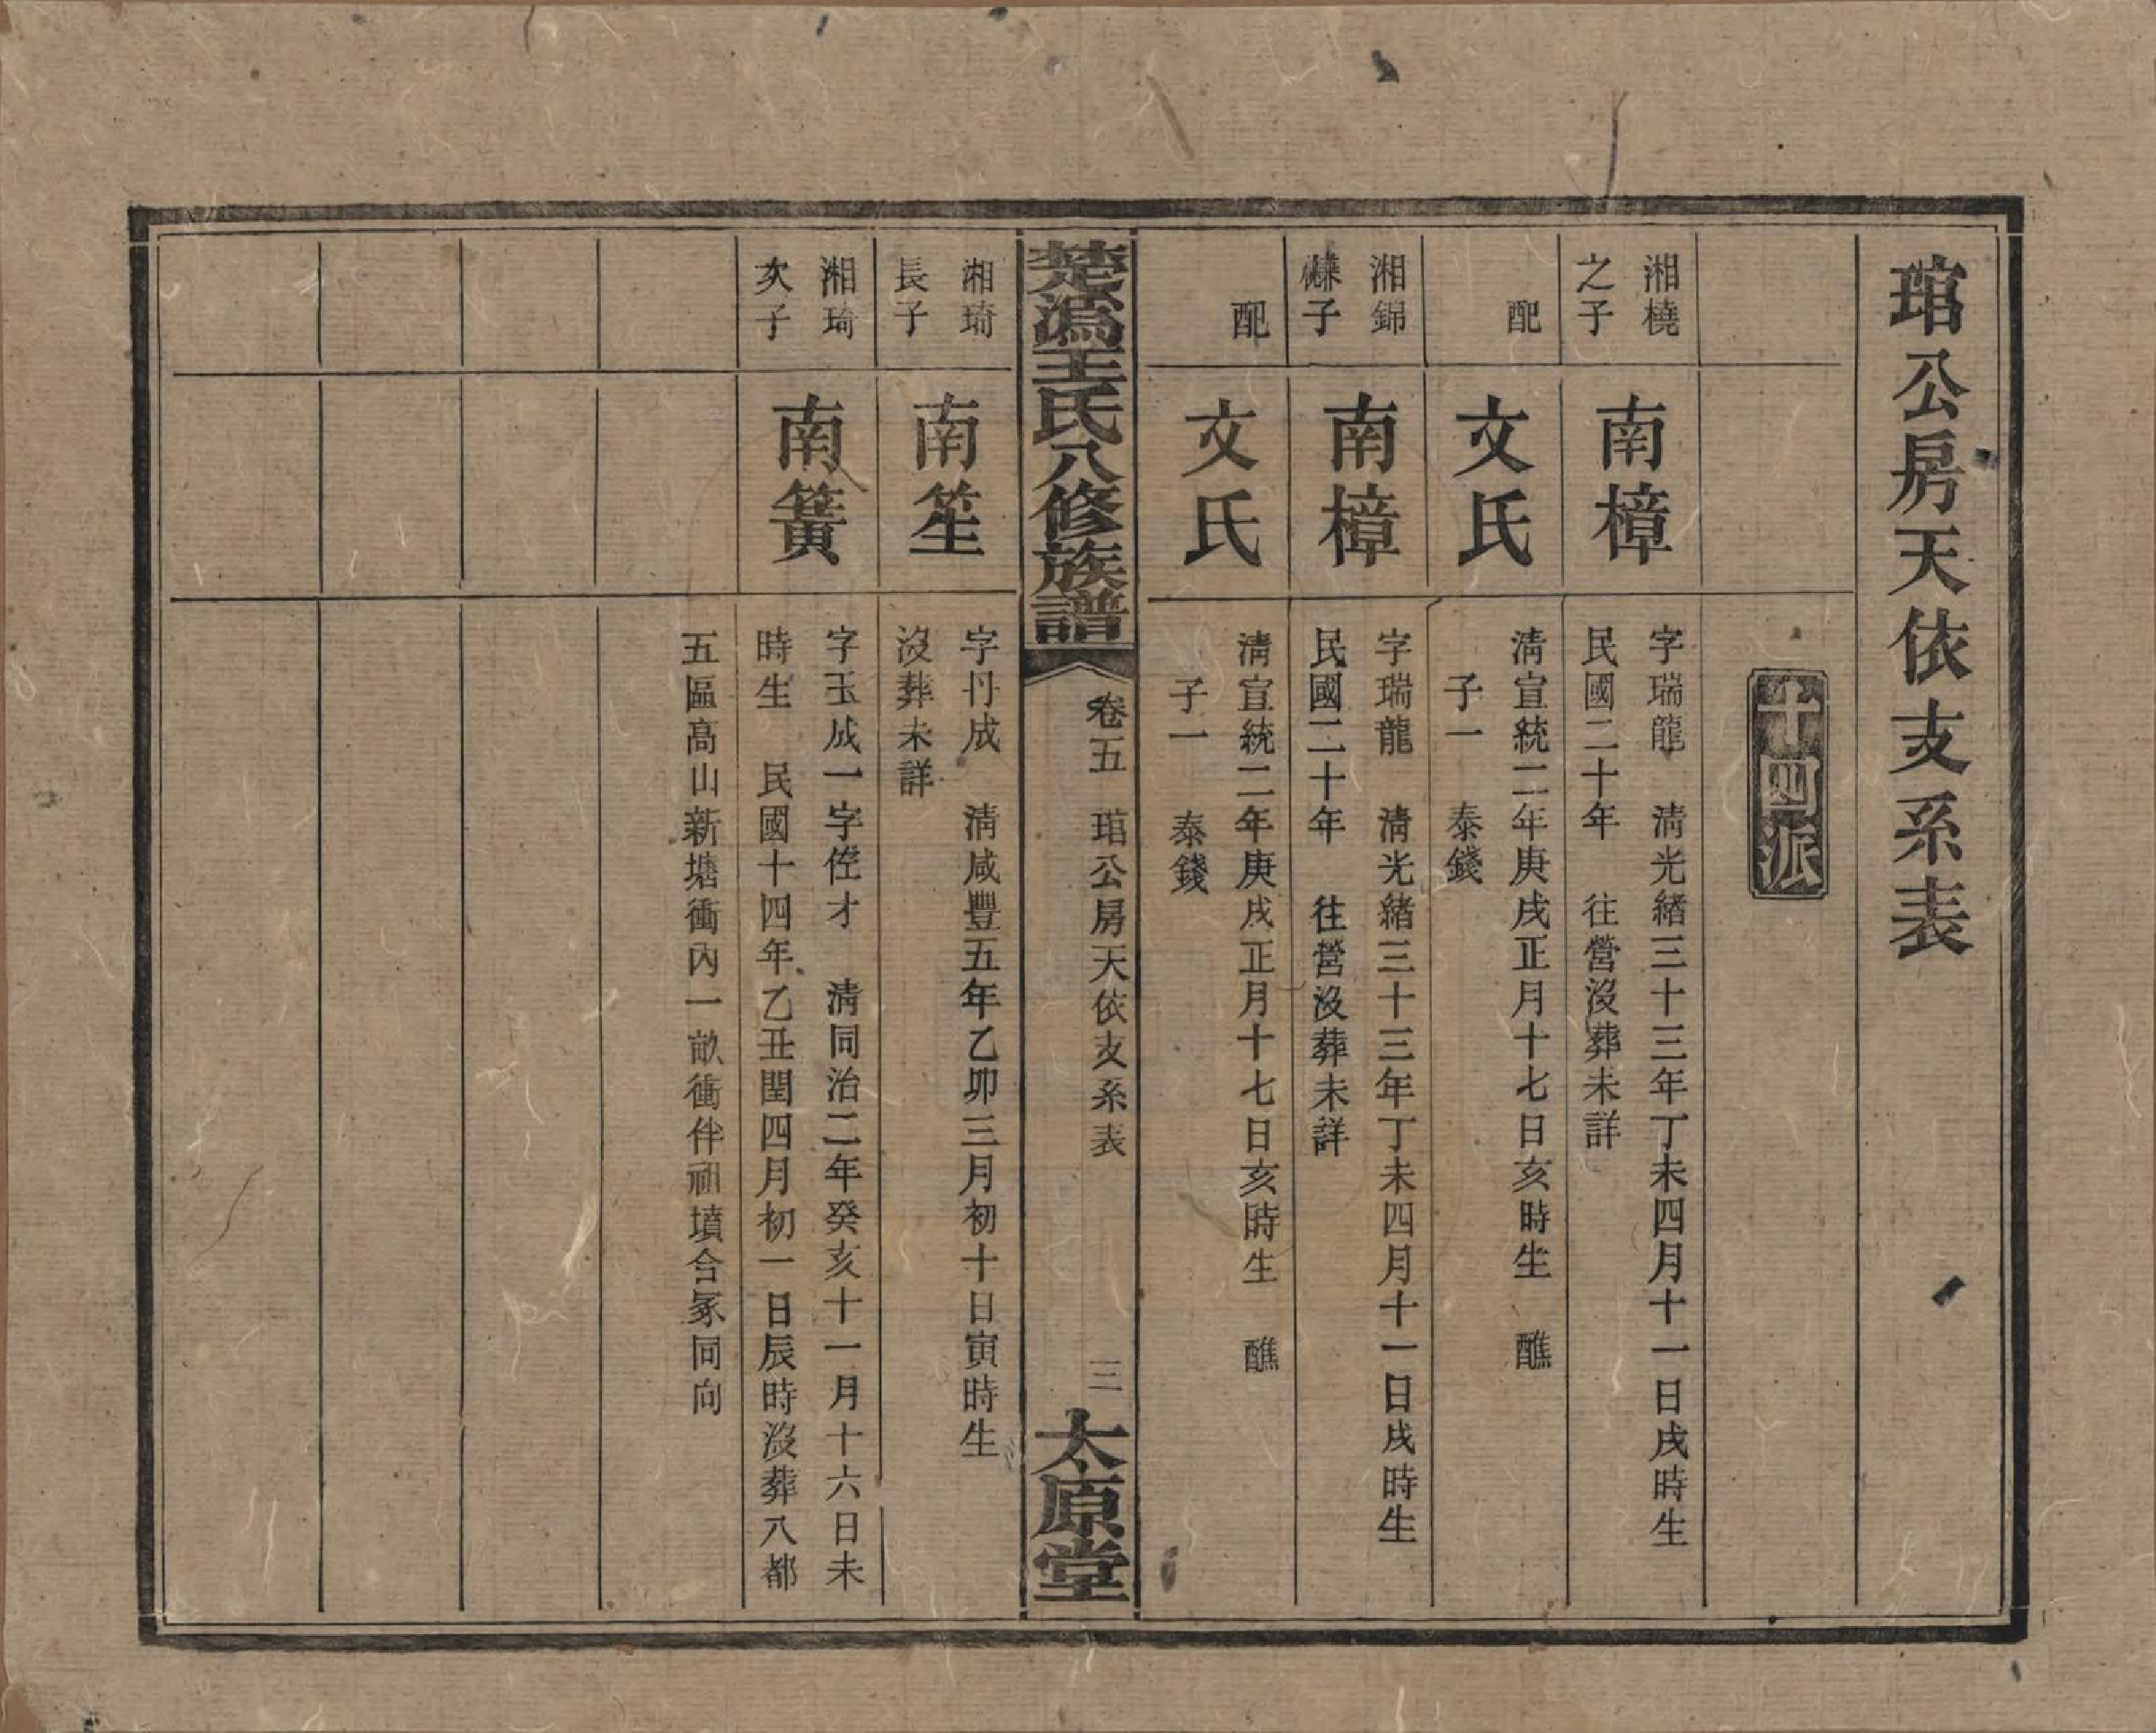 琯公房天依支系表
十四派
湘橈
之子
南樟
字瑞龍　清光緒三十三年丁未四月十一日戌時生
民國二十年　往營沒葬未詳
配
文氏
清宣統二年庚戌正月十七日亥時生　醮
子一　泰錢
湘錦
祧子
南樟
字瑞龍　清光緒三十三年丁未四月十一日戌時生
民國二十年　往營沒葬未詳
配
文氏
清宣統二年庚戌正月十七日亥時生　醮
子一　泰錢
楚溈王氏八修族譜
卷五　琯公房天依支系表
三
太原堂
湘琦
長子
南笙
字丹成　清咸豐五年乙卯三月初十日寅時生
沒葬未詳
湘琦
次子
南簧
字玉成一字侄才　清同治二年癸亥十一月十六日未
時生　民國十四年乙丑閏四月初一日辰時沒葬八都
五區高山新塘衝內一畝衝伴祖墳合冢同向